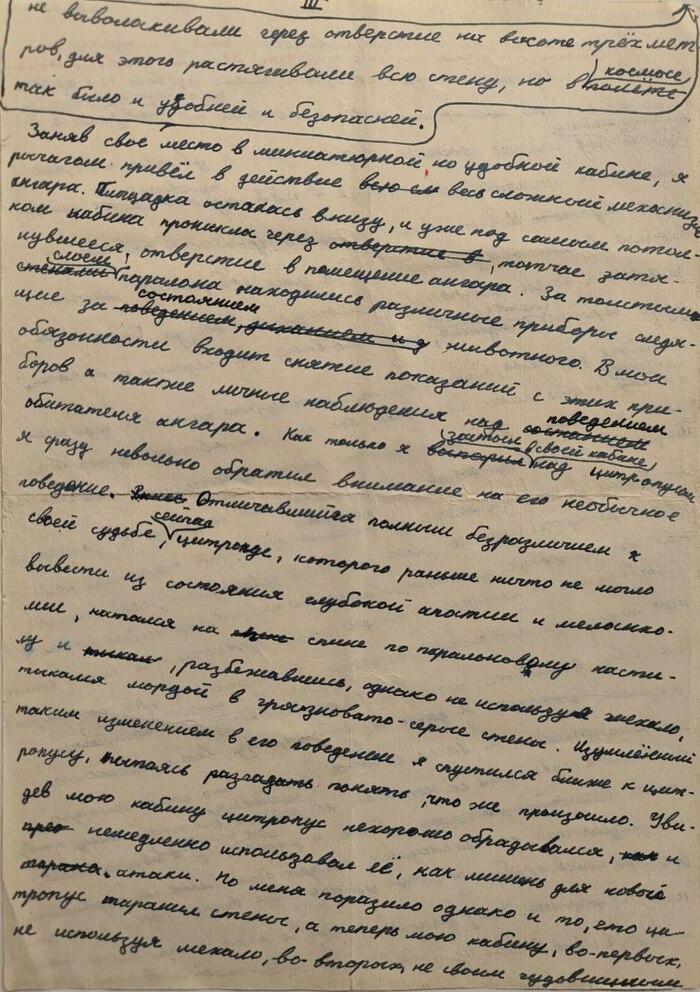 III
не выволакивали через отверстие на высоте трёх мет
ров, для этого растягивали всю стену, но в космосе полёте
так было и удобней и безопасней.
Заняв своё место в миниатюрной но удобной кабине, я
рычагом привёл в действие всю весь сложный механизм
ангара. Площадка осталась внизу, и уже под самым потол-
ком кабина проникла через отверстие в, тотчас затя-
нувшееся, отверстие в помещение ангара. За толстым
слоем стенами паралона находились различные приборы следя-
щие за состоянием поведением, дыханием и д животного. В мои
обязонности входит снятие показаний с этих при-
боров а также личные наблюдения над поведением состоянием
обитателя ангара. Как только я завтыл в своей кабине над цитропусом
я сразу невольно обратил внимание на его необычное
поведение. Отличавшийся полным безразличием к
своей судьбе, сейчас цитропус, которого раньше ничто не могло
вывести из состояния глубокой апатии и меланхо-
лии, катался на спине по паралоновому насти-
лу и тыкал, разбежавшись, однако не используя жехало,
тыкался мордой в грязновато-серые стены. Изумлённый
таким изменением в его поведении я спустился ближе к цит-
ропусу, пытаясь разгадать понять, что же произошло. Уви-
дев мою кабину цитропус нехорошо обрадывался, как и
прео немедленно использовал её, как мишень для новой
тарана. атаки. Но меня поразило однако и то, что ци-
тропус таранил стены, а теперь мою кабину, во-первых,
не используя мехало, во-вторых, не своим чудовищным